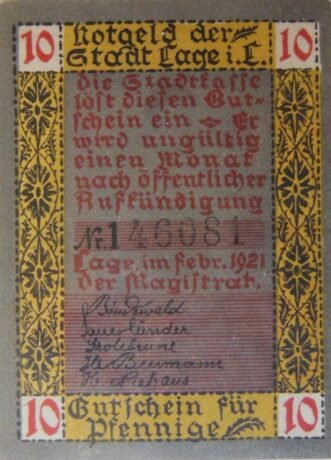 10 Notgeld der 10
Stadt Lage i. L.
die Stadtkasse
löst diesen Gut-
schein ein Er
wird ungültig
einen Monat
nach öffentlicher
Aufkündigung
Nr. 146081
Lage, im Febr. 1921
der Magistrat.
Sauerländer
10 Gutschein für 10
Pfennige